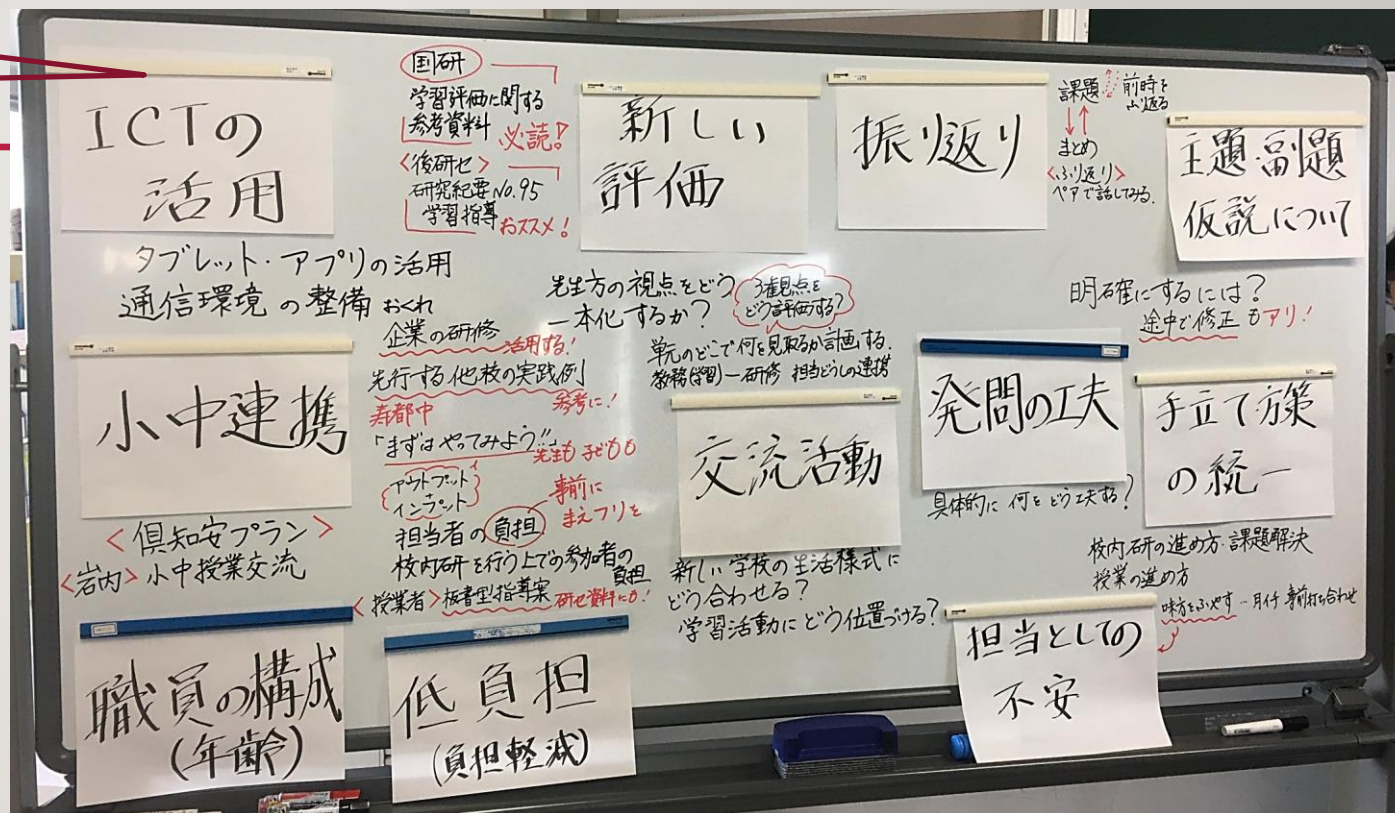 ICTの
活用
国研
学習評価に関する
参考資料 必読!
<後研セ>
研究紀要No.95
学習指導 おススメ!
新しい
評価
振り返り
課題 前時を
ふり返る
まとめ
<ふり返り>
ペアで話してみる.
主題・副題
仮説について
タブレット・アプリの活用
通信環境の整備 おくれ
企業の研修 活用する!
先行する他校の実践例
寿都中 参考に!
「まずはやってみよう!!」
先生も子どもも
アウトプット
+
インプット
事前に
まえフリを
担当者の負担
校内研を行う上での参加者の
負担
<授業者>板書型指導案 研セ資料にも!
先生方の視点をどう
一本化するか?
3観点を
どう評価する?
単元のどこで何を見取るか計画する.
教務(学習)ー研修 担当どうしの連携
明確にするには?
途中で修正もアリ!
小中連携
<倶知安プラン>
<岩内>小中授業交流
交流活動
新しい学校の生活様式に
どう合わせる?
学習活動にどう位置づける?
発問の工夫
具体的に何をどう工夫する?
手立て・方策
の統一
校内研の進め方・課題解決
授業の進め方
味方をふやす ー月イチ 事前打ち合わせ
職員の構成
(年齢)
低負担
(負担軽減)
担当としての
不安